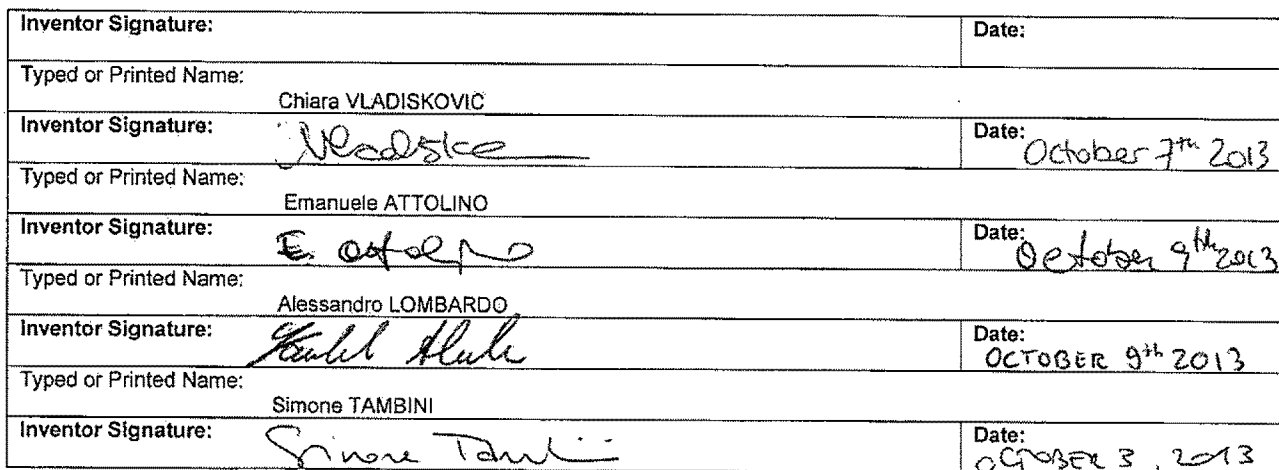 Inventor Signature: Date:
Typed or Printed Name:
Chiara VLADISKOVIC
Inventor Signature: Date: October 7th 2013
Typed or Printed Name:
Emanuele ATTOLINO
Inventor Signature: E. Date: October 9th 2013
Typed or Printed Name:
Alessandro LOMBARDO
Inventor Signature: Date: OCTOBER 9th 2013
Typed or Printed Name:
Simone TAMBINI
Inventor Signature: Simone Date: OCTOBER 3, 2013